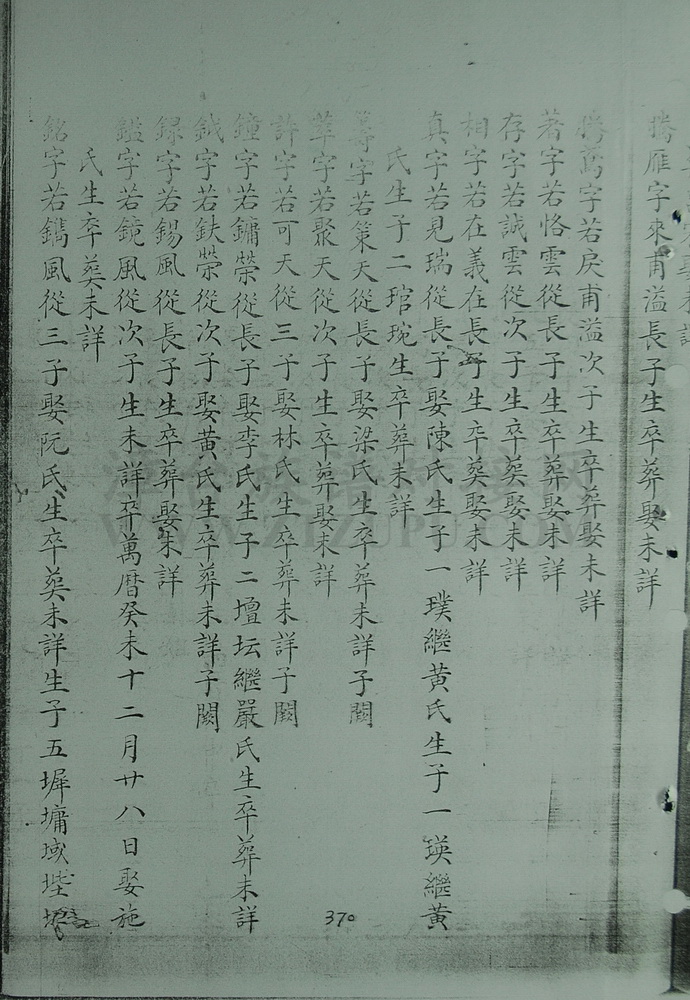 騰雁字來甫溢長子生卒葬娶未詳
騰蔫字若戾甫溢次子生卒葬娶未詳
著字若恪雲從長子生卒葬娶未詳
存字若誠雲從次子生卒葬娶未詳
相字若在義在長子生卒葬娶未詳
真字若見瑞從長子娶陳氏生子一璞繼黃氏生子一瑛繼黃
氏生子二琯琬生卒葬未詳
籌字若策天從長子娶梁氏生卒葬未詳子闕
萃字若聚天從次子生卒葬娶未詳
許字若可天從三子娶林氏生卒葬未詳子闕
鐘字若鏞榮從長子娶李氏生子二壇坛繼嚴氏生卒葬未詳
鉞字若鈇榮從次子娶黃氏生卒葬未詳子闕
錄字若錫風從長子生卒葬娶未詳
鑑字若鏡風從次子生未詳卒萬曆癸未十二月廿八日娶施
氏生卒葬未詳
銘字若鐫風從三子娶阮氏生卒葬未詳生子五墀墉域
370
WWW.ZIZUPU.COM